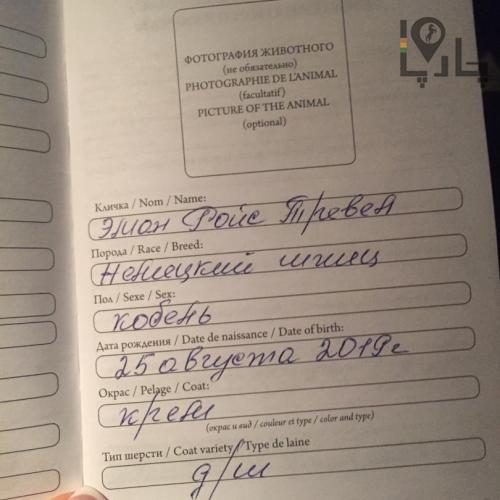 چارپا
ФОТОГРАФИЯ ЖИВОТНОГО
(не обязательно)
PHOTOGRAPHIE DE L'ANIMAL
(facultatif)
PICTURE OF THE ANIMAL
(optional)
Кличка / Nom / Name:
Эмон Ройс Тревел
Порода / Race / Breed:
Немецкий шпиц
Пол / Sexe / Sex:
кобель
Дата рождения / Date de naissance / Date of birth:
25 августа 2019г
Окрас / Pelage / Coat:
крем
(окрас и вид / couleur et type / color and type)
Тип шерсти / Coat variety / Type de laine
д/ш